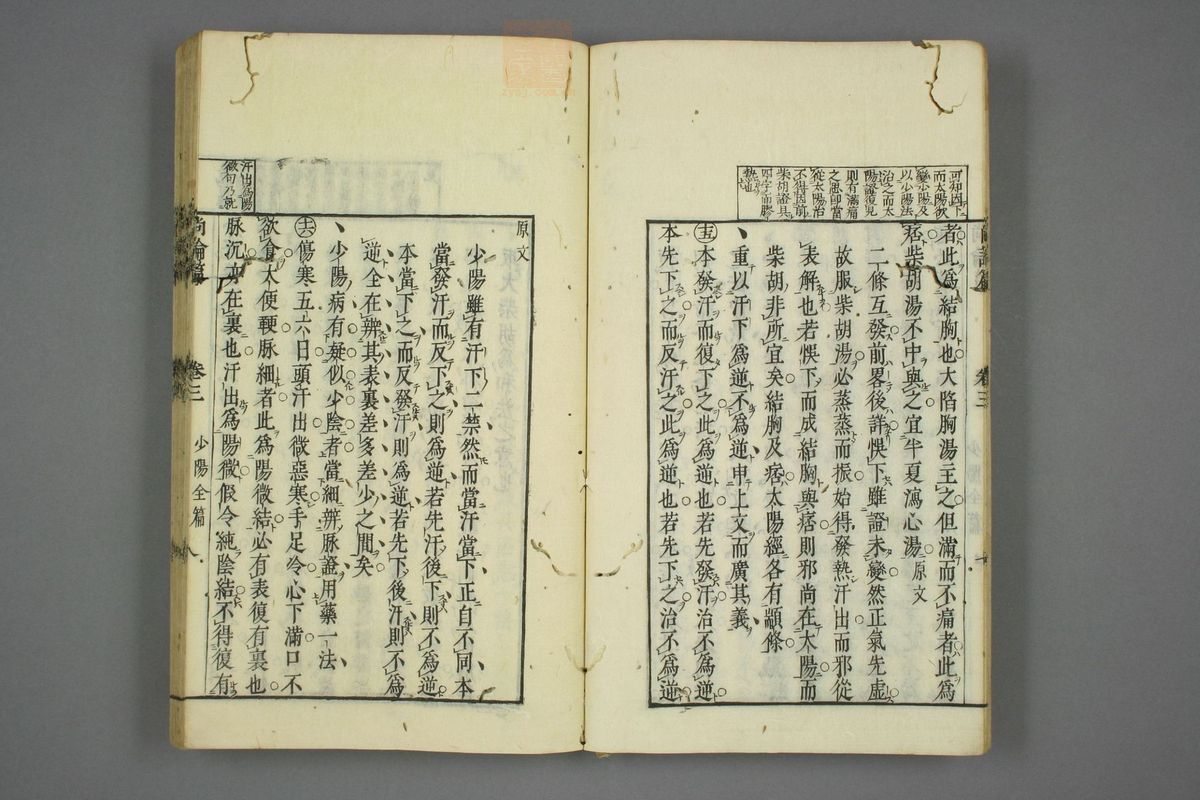 可知因下
而太陽欲
變少陽及
以少陽法
治之而太
陽證復見
則有滿痛
之患卽當
從太陽治
不得因前
柴胡證具
四字而膠
熱也
者此爲結胸也大陷胸湯主之但滿而不痛者此爲
痞柴胡湯不中與之宜半夏瀉心湯原文
二條互發前畧後詳悞下雖證未變然正氣先虛
故服柴胡湯必蒸蒸而振始得發熱汗出而邪從
表解也若悞下而成結胸與痞則邪尚在太陽而
柴胡非所宜矣結胸及痞太陽經各有顓條
重以汗下爲逆不爲逆申上文而廣其義
本發汗而復下之此爲逆也若先發汗治不爲逆
本先下之而反汗之此爲逆也若先下之治不爲逆
卷三
少陽全篇
原文
少陽雖有汗下二禁然而當汗當下正自不同本
當發汗而反下之則爲逆若先汗後下則不爲逆
本當下之而反發汗則爲逆若先下後汗則不爲
逆全在辨其表裏差多差少之間矣
少陽病有疑似少陰者當細辨脉證用藥一法
傷寒五六日頭汗出微惡寒手足冷心下滿口不
欲食大便鞕脉細者此爲陽微結必有表復有裏也
脉沉亦在裏也汗出爲陽微假令純陰結不得復有
汗出爲陽
微句乃就
尚論篇
卷三
少陽全篇